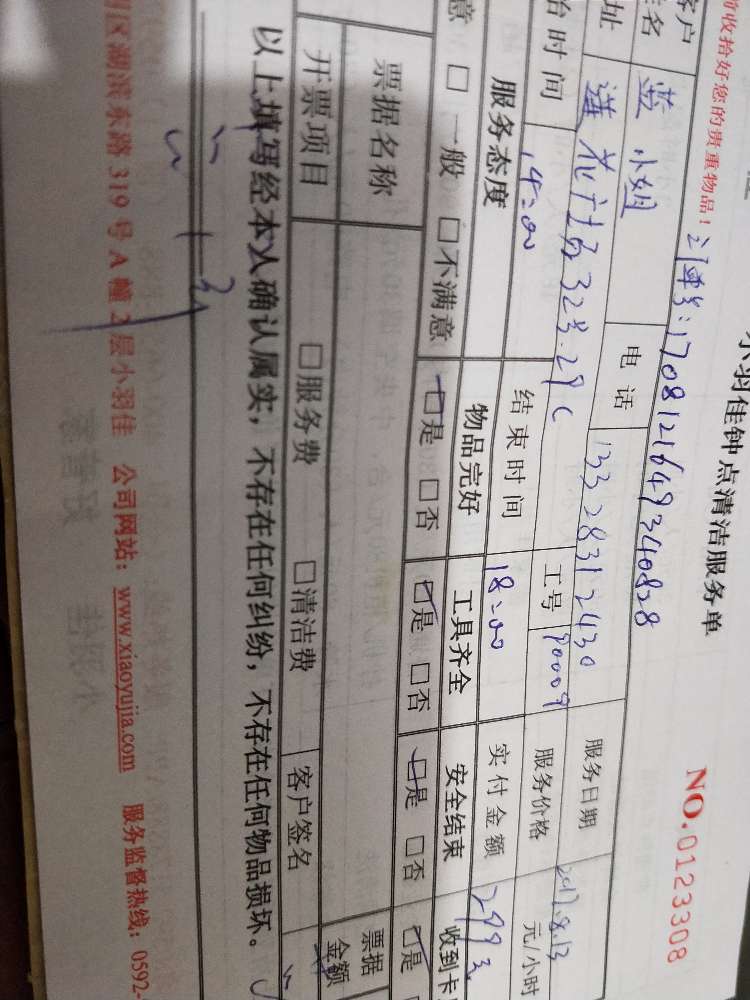 小羽佳钟点清洁服务单
NO.0123308
收拾好您的贵重物品！
订单号：1708121649340828
客户
姓名 蓝小姐 电话 13328312430 服务日期 2017.8.13
址 莲花广场32号.29C 工号 90009 服务价格 元/小时
时间 14:00 结束时间 18:00 实付金额 299元
服务态度 物品完好 工具齐全 安全结束 收到卡
意 □一般 □不满意 □是 □否 □是 □否 □是 □否 □是
票据名称 票据金额
开票项目 □服务费 □清洁费 客户签名
以上填写经本人确认属实，不存在任何纠纷，不存在任何物品损坏。
区湖滨东路 319 号 A 幢 2 层小羽佳 公司网站：www.xiaoyujia.com 服务监督热线：0592-